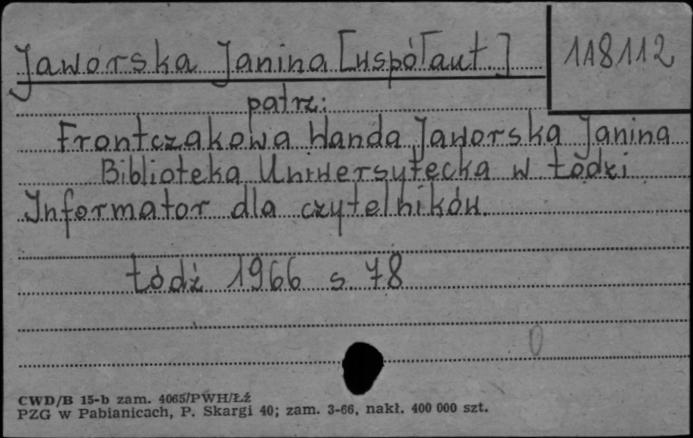 Jaworska Janina [współaut.]
118112
patrz:
Frontczakowa Wanda, Jaworska Janina
Biblioteka Uniwersytecka w Łodzi
Informator dla czytelników.
Łódź 1966 s. 78
0
CWD/B 15-b zam. 4065/PWH/Łź
PZG w Pabianicach, P. Skargi 40; zam. 3-66, nakł. 400 000 szt.